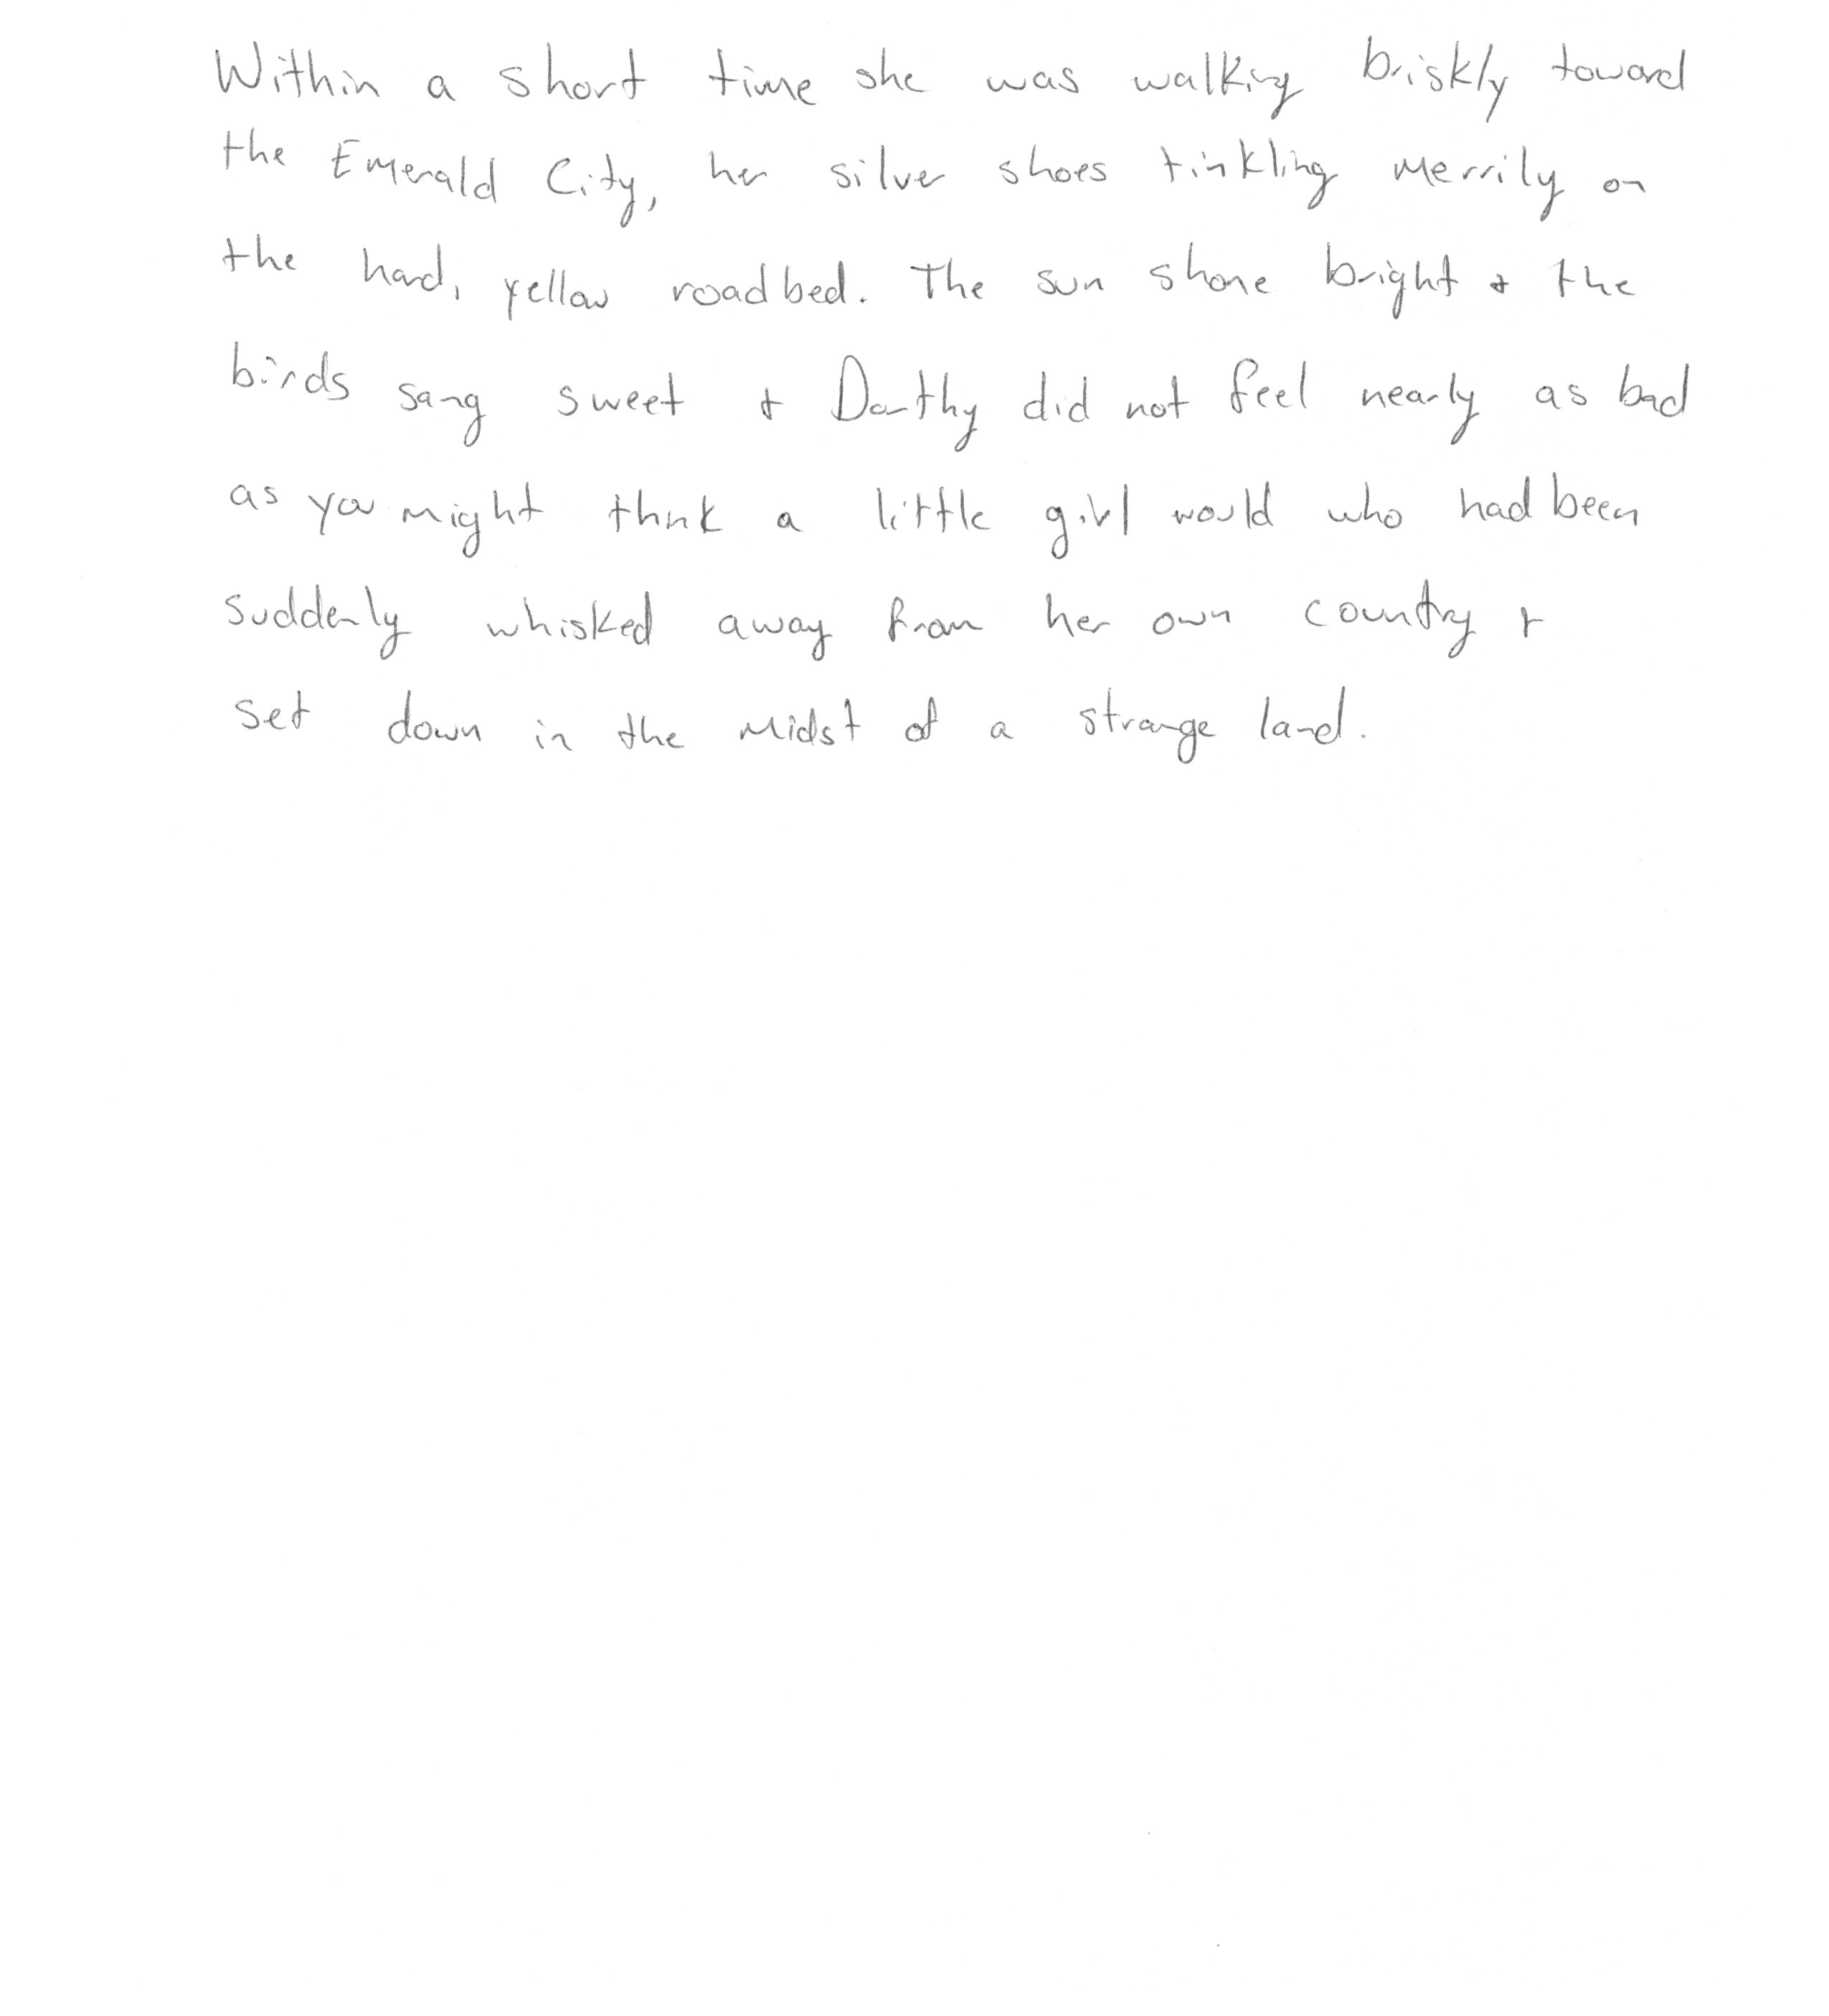 Within a short time she was walking briskly toward
the Emerald City, her silver shoes tinkling merrily on
the hard, yellow roadbed. The sun shone bright + the
birds sang sweet + Dorothy did not feel nearly as bad
as you might think a little girl would who had been
suddenly whisked away from her own country +
set down in the midst of a strange land.